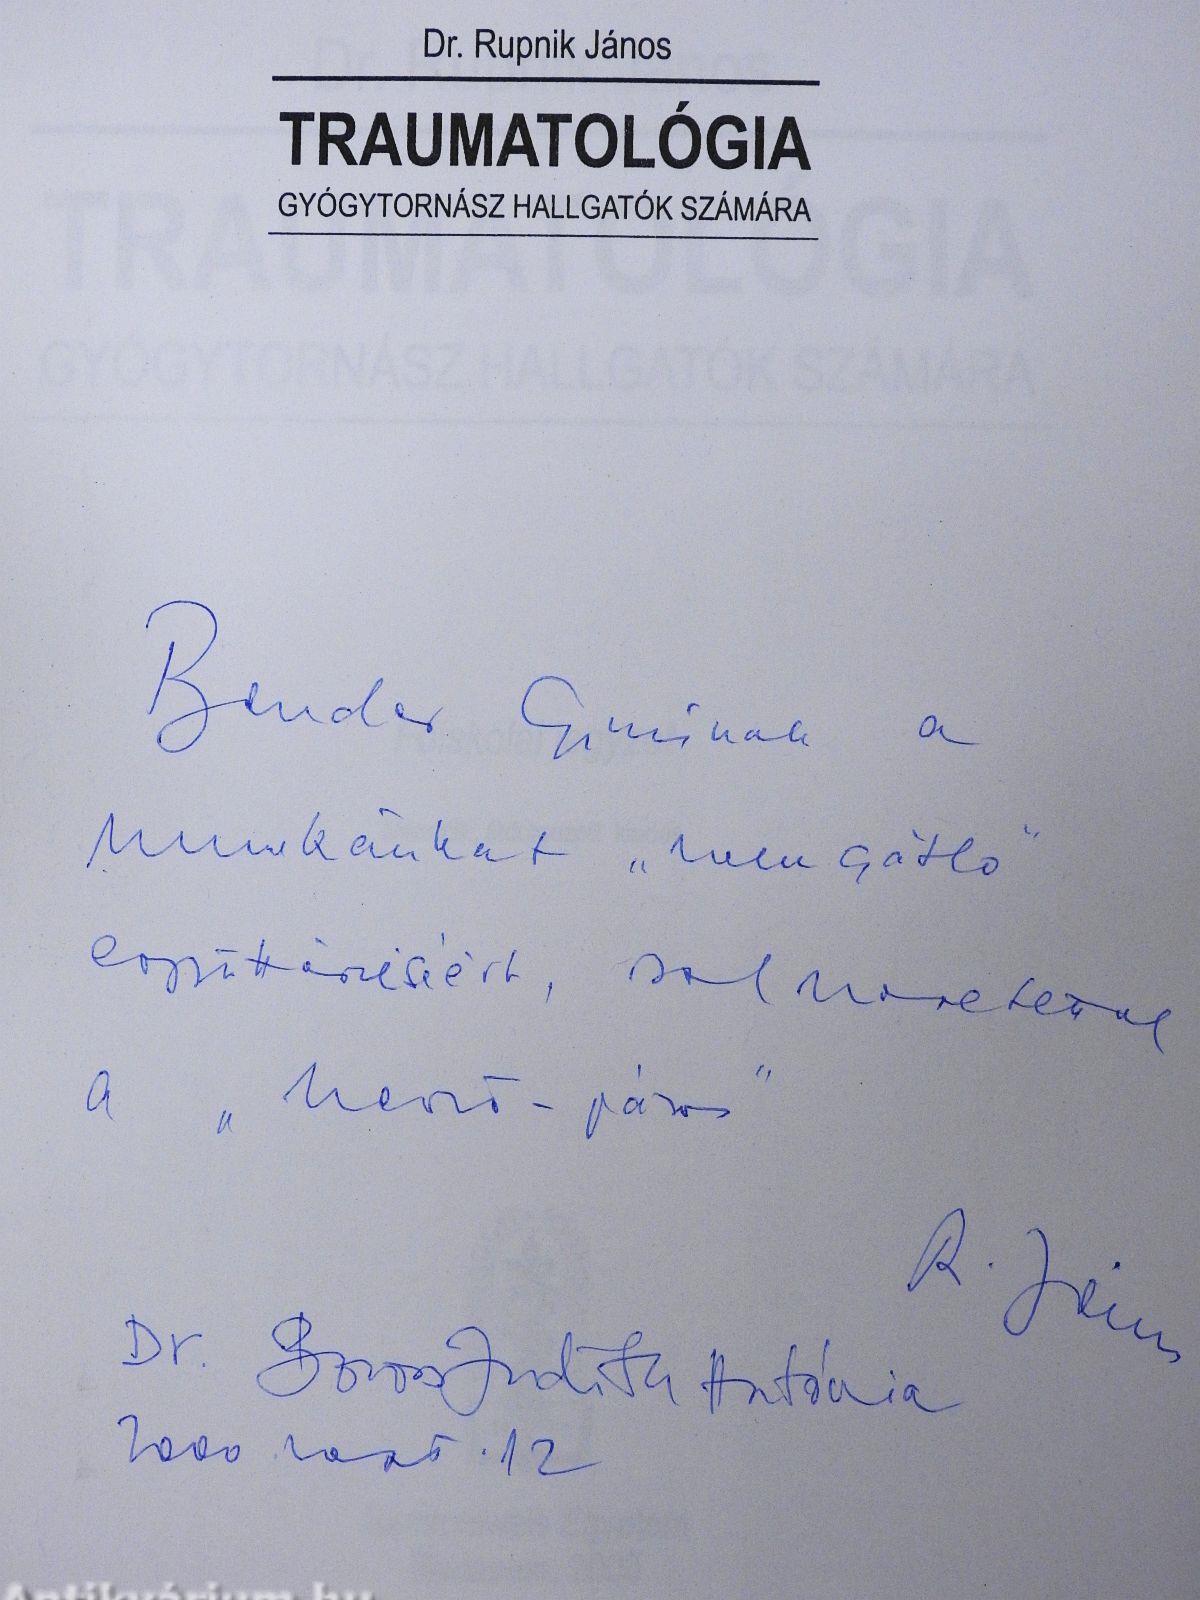 Dr. Rupnik János
TRAUMATOLÓGIA
GYÓGYTORNÁSZ HALLGATÓK SZÁMÁRA
Bender a
munkánkat „nem gátló”
együttérzéséért, sok szeretettel
a „ - páros”
R. János
Dr. Boros Judith Antónia
2000 12
Antikvárium.hu